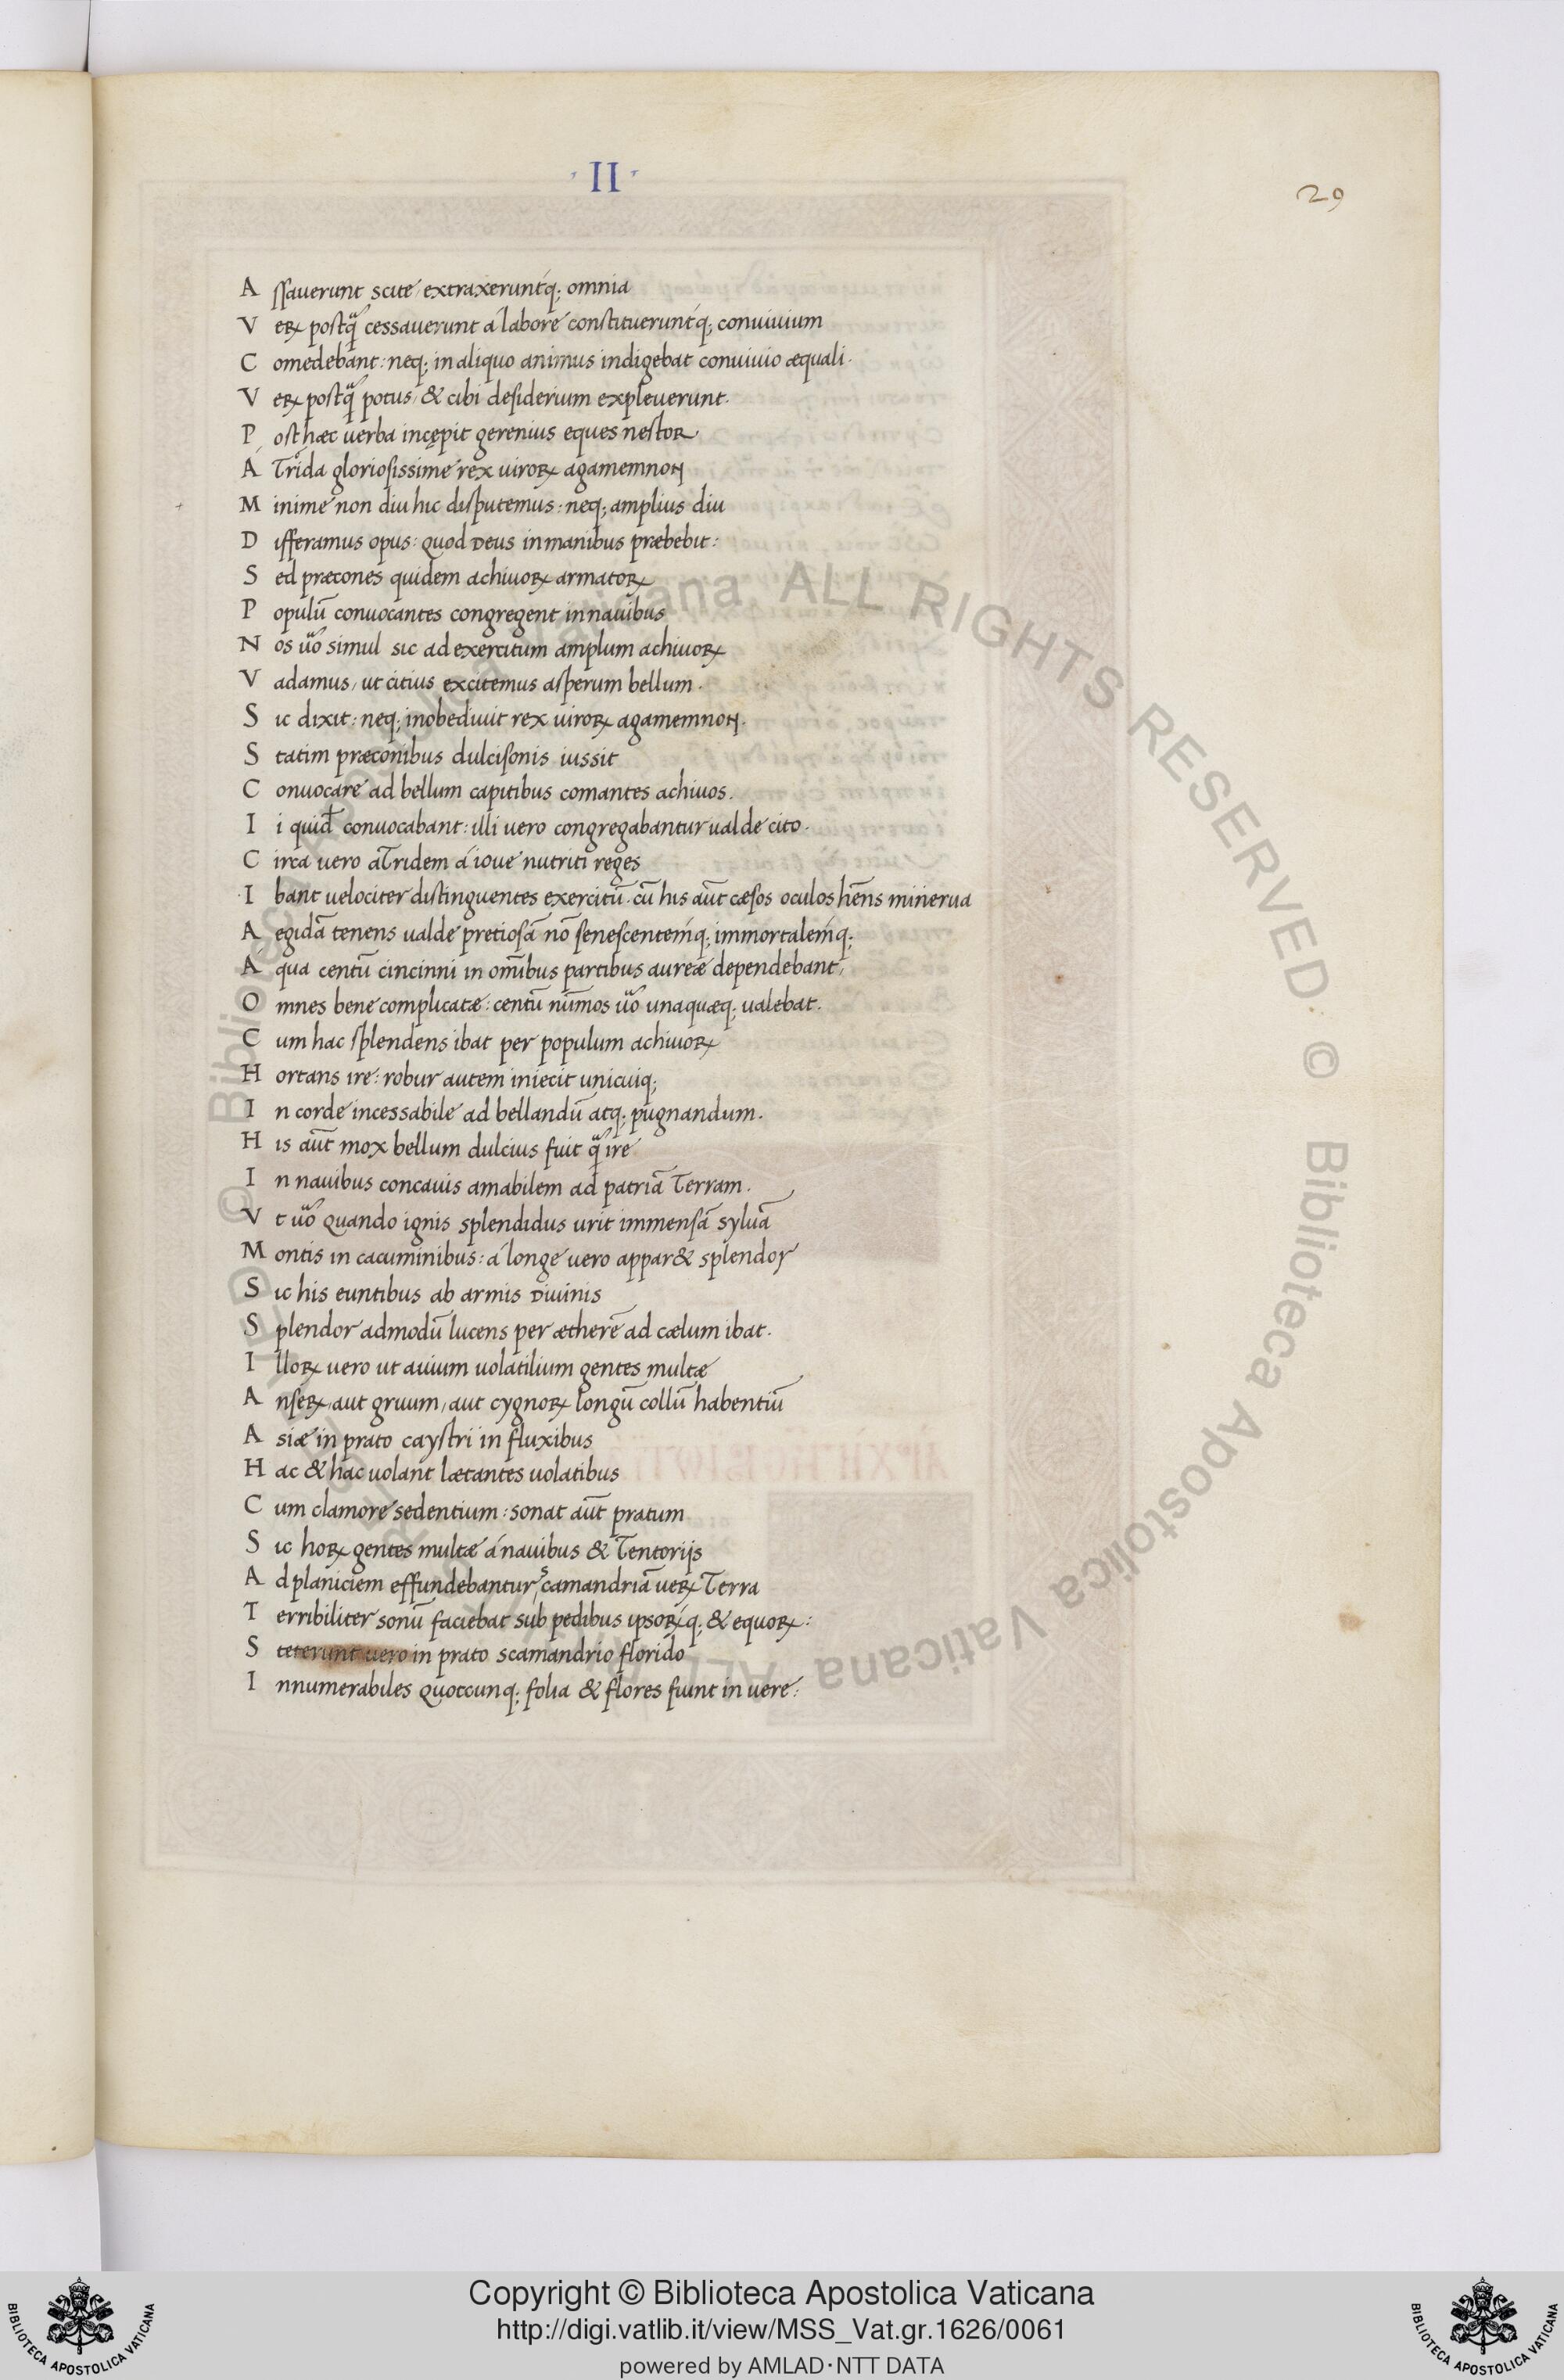 · II ·
29
A ssauerunt scite, extraxeruntq; omnia
V erꝝ postq̃ cessauerunt a labore constitueruntq; conuiuium
C omedebant: neq; in aliquo animus indigebat conuiuio æquali.
V erꝝ postq̃ potus, & cibi desiderium expleuerunt.
P ost hæc uerba incępit gerenius eques nestor.
A Trida gloriosissime rex uiroꝝ agamemnon
M inime non diu hic disputemus: neq; amplius diu
D ifferamus opus: quod Deus in manibus præbebit:
S ed præcones quidem achiuoꝝ armatoꝝ
P opulū conuocantes congregent in nauibus
N os ũo simul sic ad exercitum amplum achiuoꝝ
V adamus, ut citius excitemus asperum bellum.
S ic dixit: neq; inobediuit rex uiroꝝ agamemnon.
S tatim præconibus dulcisonis iussit
C onuocare ad bellum capitibus comantes achiuos.
I i quid̄ conuocabant: illi uero congregabantur ualde cito.
C irca uero aTridem á ioue nutriti reges
I bant uelociter distinguentes exercitū. cū his aūt cæsos oculos hēns minerua
A egidā tenens ualde pretiosā nō senescentemq; immortalemq;
A qua centū cincinni in om̄ibus partibus aureæ dependebant,
O mnes bene complicatæ: centū nūmos ũo unaquæq; ualebat.
C um hac splendens ibat per populum achiuoꝝ
H ortans ire: robur autem iniecit unicuiq;
I n corde incessabile ad bellandū atq; pugnandum.
H is aūt mox bellum dulcius fuit q̃ ire
I n nauibus concauis amabilem ad patriā Terram.
V t ũo quando ignis splendidus urit immensā syluā
M ontis in cacuminibus: á longe uero appar& splendor
S ic his euntibus ab armis Diuinis
S plendor admodū lucens per ætherē ad cælum ibat.
I lloꝝ uero ut auium uolatilium gentes multæ
A nseꝝ, aut gruum, aut cygnoꝝ longū collū habentiū
A siæ in prato caystri in fluxibus
H ac & hac uolant lætantes uolatibus
C um clamore sedentium: sonat aūt pratum
S ic hoꝝ gentes multæ á nauibus & Tentorijs
A d planiciem effundebantur, scamandriā ueꝝ Terra
T erribiliter sonū faciebat sub pedibus ipsoꝝq; & equoꝝ:
S teterunt uero in prato scamandrio florido
I nnumerabiles quotcunq; folia & flores fiunt in uere:
© Biblioteca Apostolica Vaticana ALL RIGHTS RESERVED. © Biblioteca Apostolica Vaticana ALL
Copyright © Biblioteca Apostolica Vaticana
http://digi.vatlib.it/view/MSS_Vat.gr.1626/0061
powered by AMLAD·NTT DATA
BIBLIOTECA APOSTOLICA VATICANA
BIBLIOTECA APOSTOLICA VATICANA